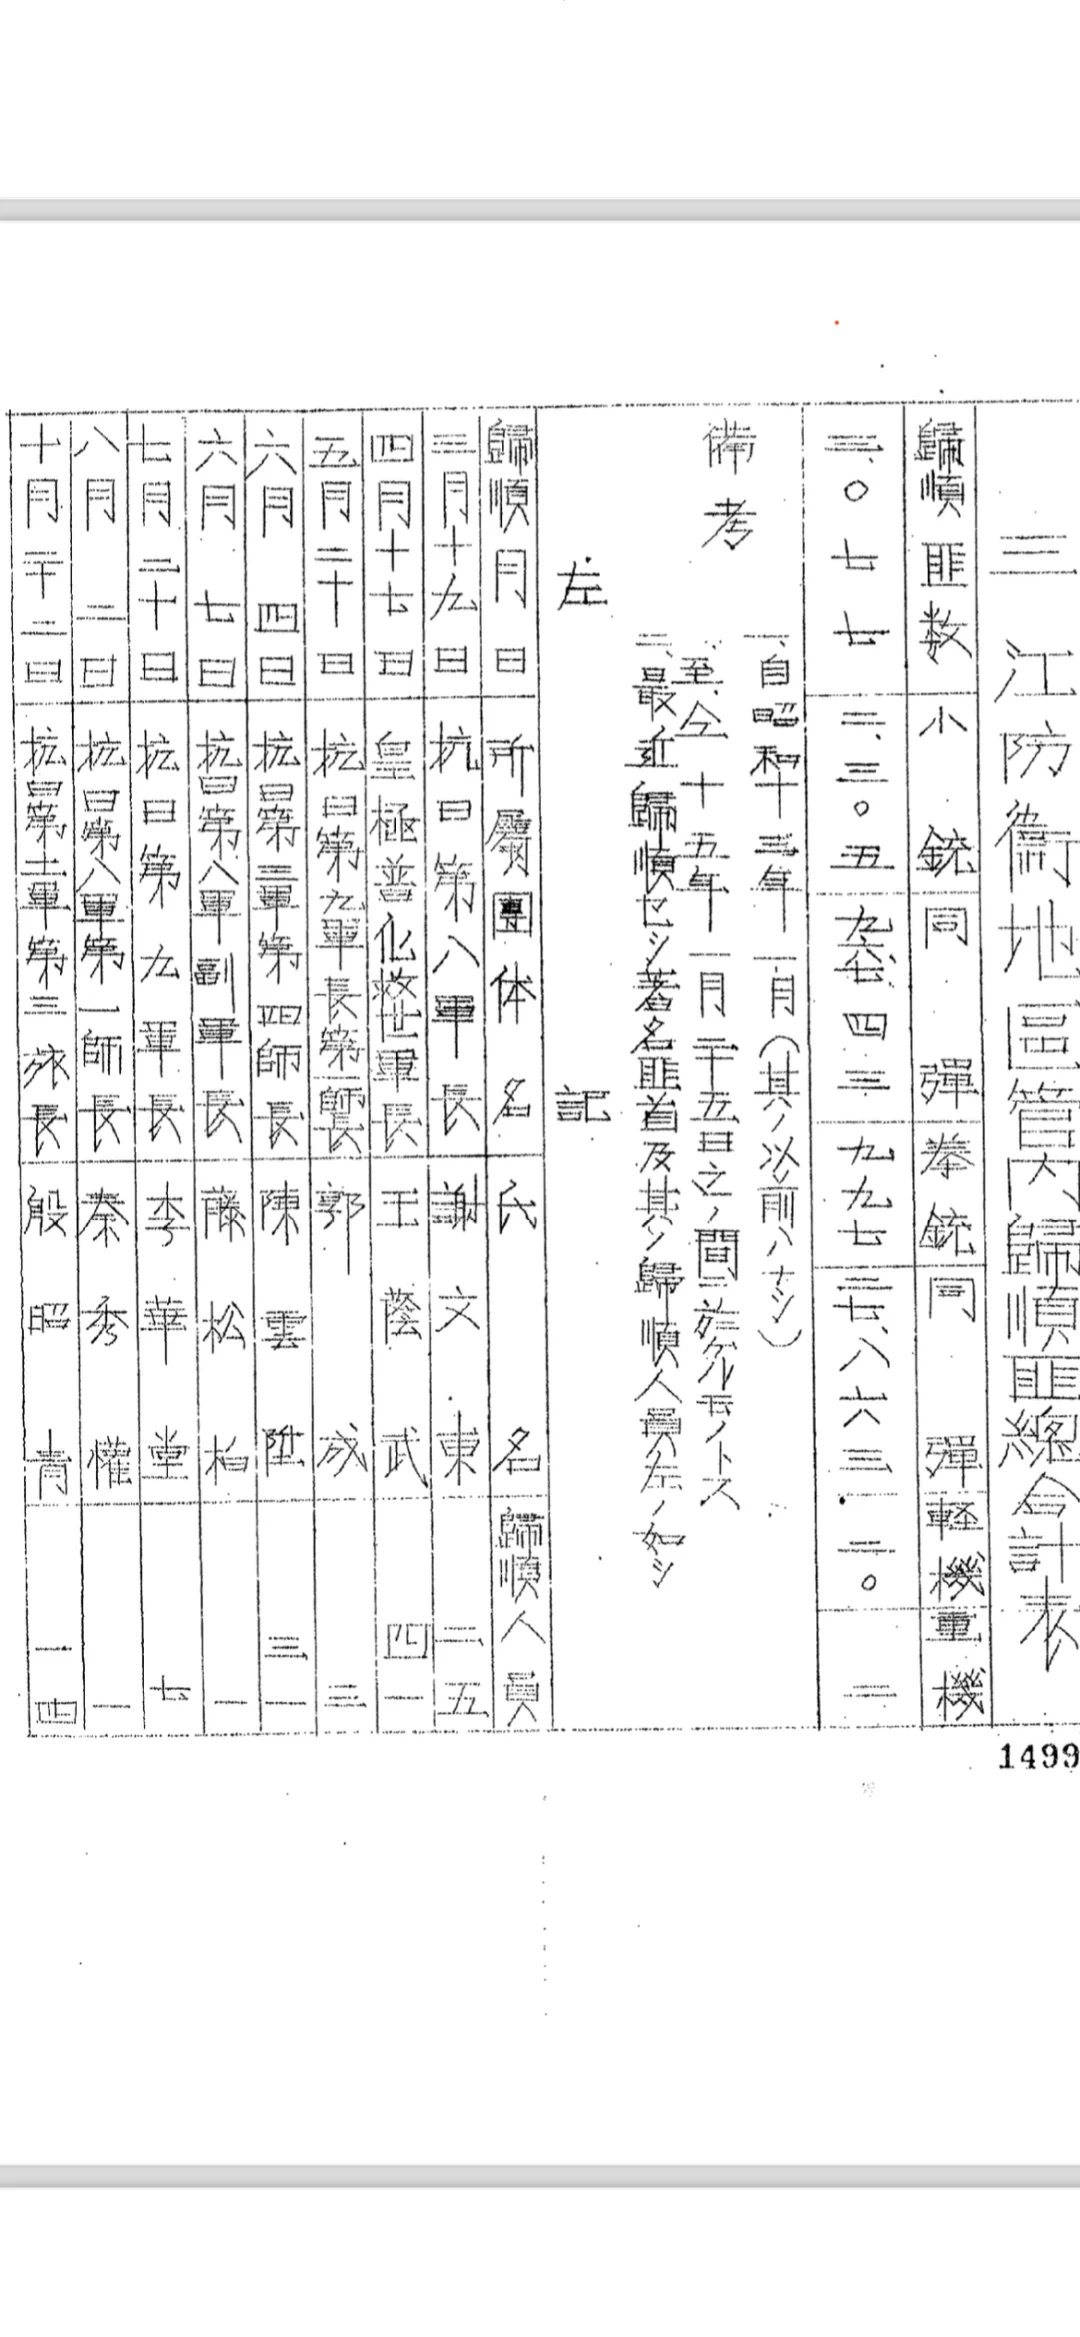 三 江防衛地區管内歸順匪總合計表
歸順匪数 小銃 同彈 拳銃 同彈 軽機 重機
三、〇七七 二、三〇五 四三 九九七 八六三 二〇 二
備考
一、自昭和十三年一月(其ノ以前ハナシ)
至、仝十五年一月二十五日之ノ間ニ於ケルモノトス
二、最近歸順セシ著名匪首及其ノ歸順人員左ノ如シ
左記
歸順月日 所屬團体名 氏名 歸順人員
三月十九日 抗日第八軍軍長 謝文東 二五
四月十七日 皇極普化救世軍軍長 王蔭武 四一
五月二十日 抗日第九軍長第一師師長 郭成 三
六月四日 抗日第三軍第四師長 陳雲陞 三一
六月七日 抗日第八軍副軍長 藤松柏 一
七月二十日 抗日第九軍長 李華堂 七
八月二日 抗日第八軍第一師長 秦秀權 一
十月二十二日 抗日第軍第二旅長 殷昭青 一四
1499